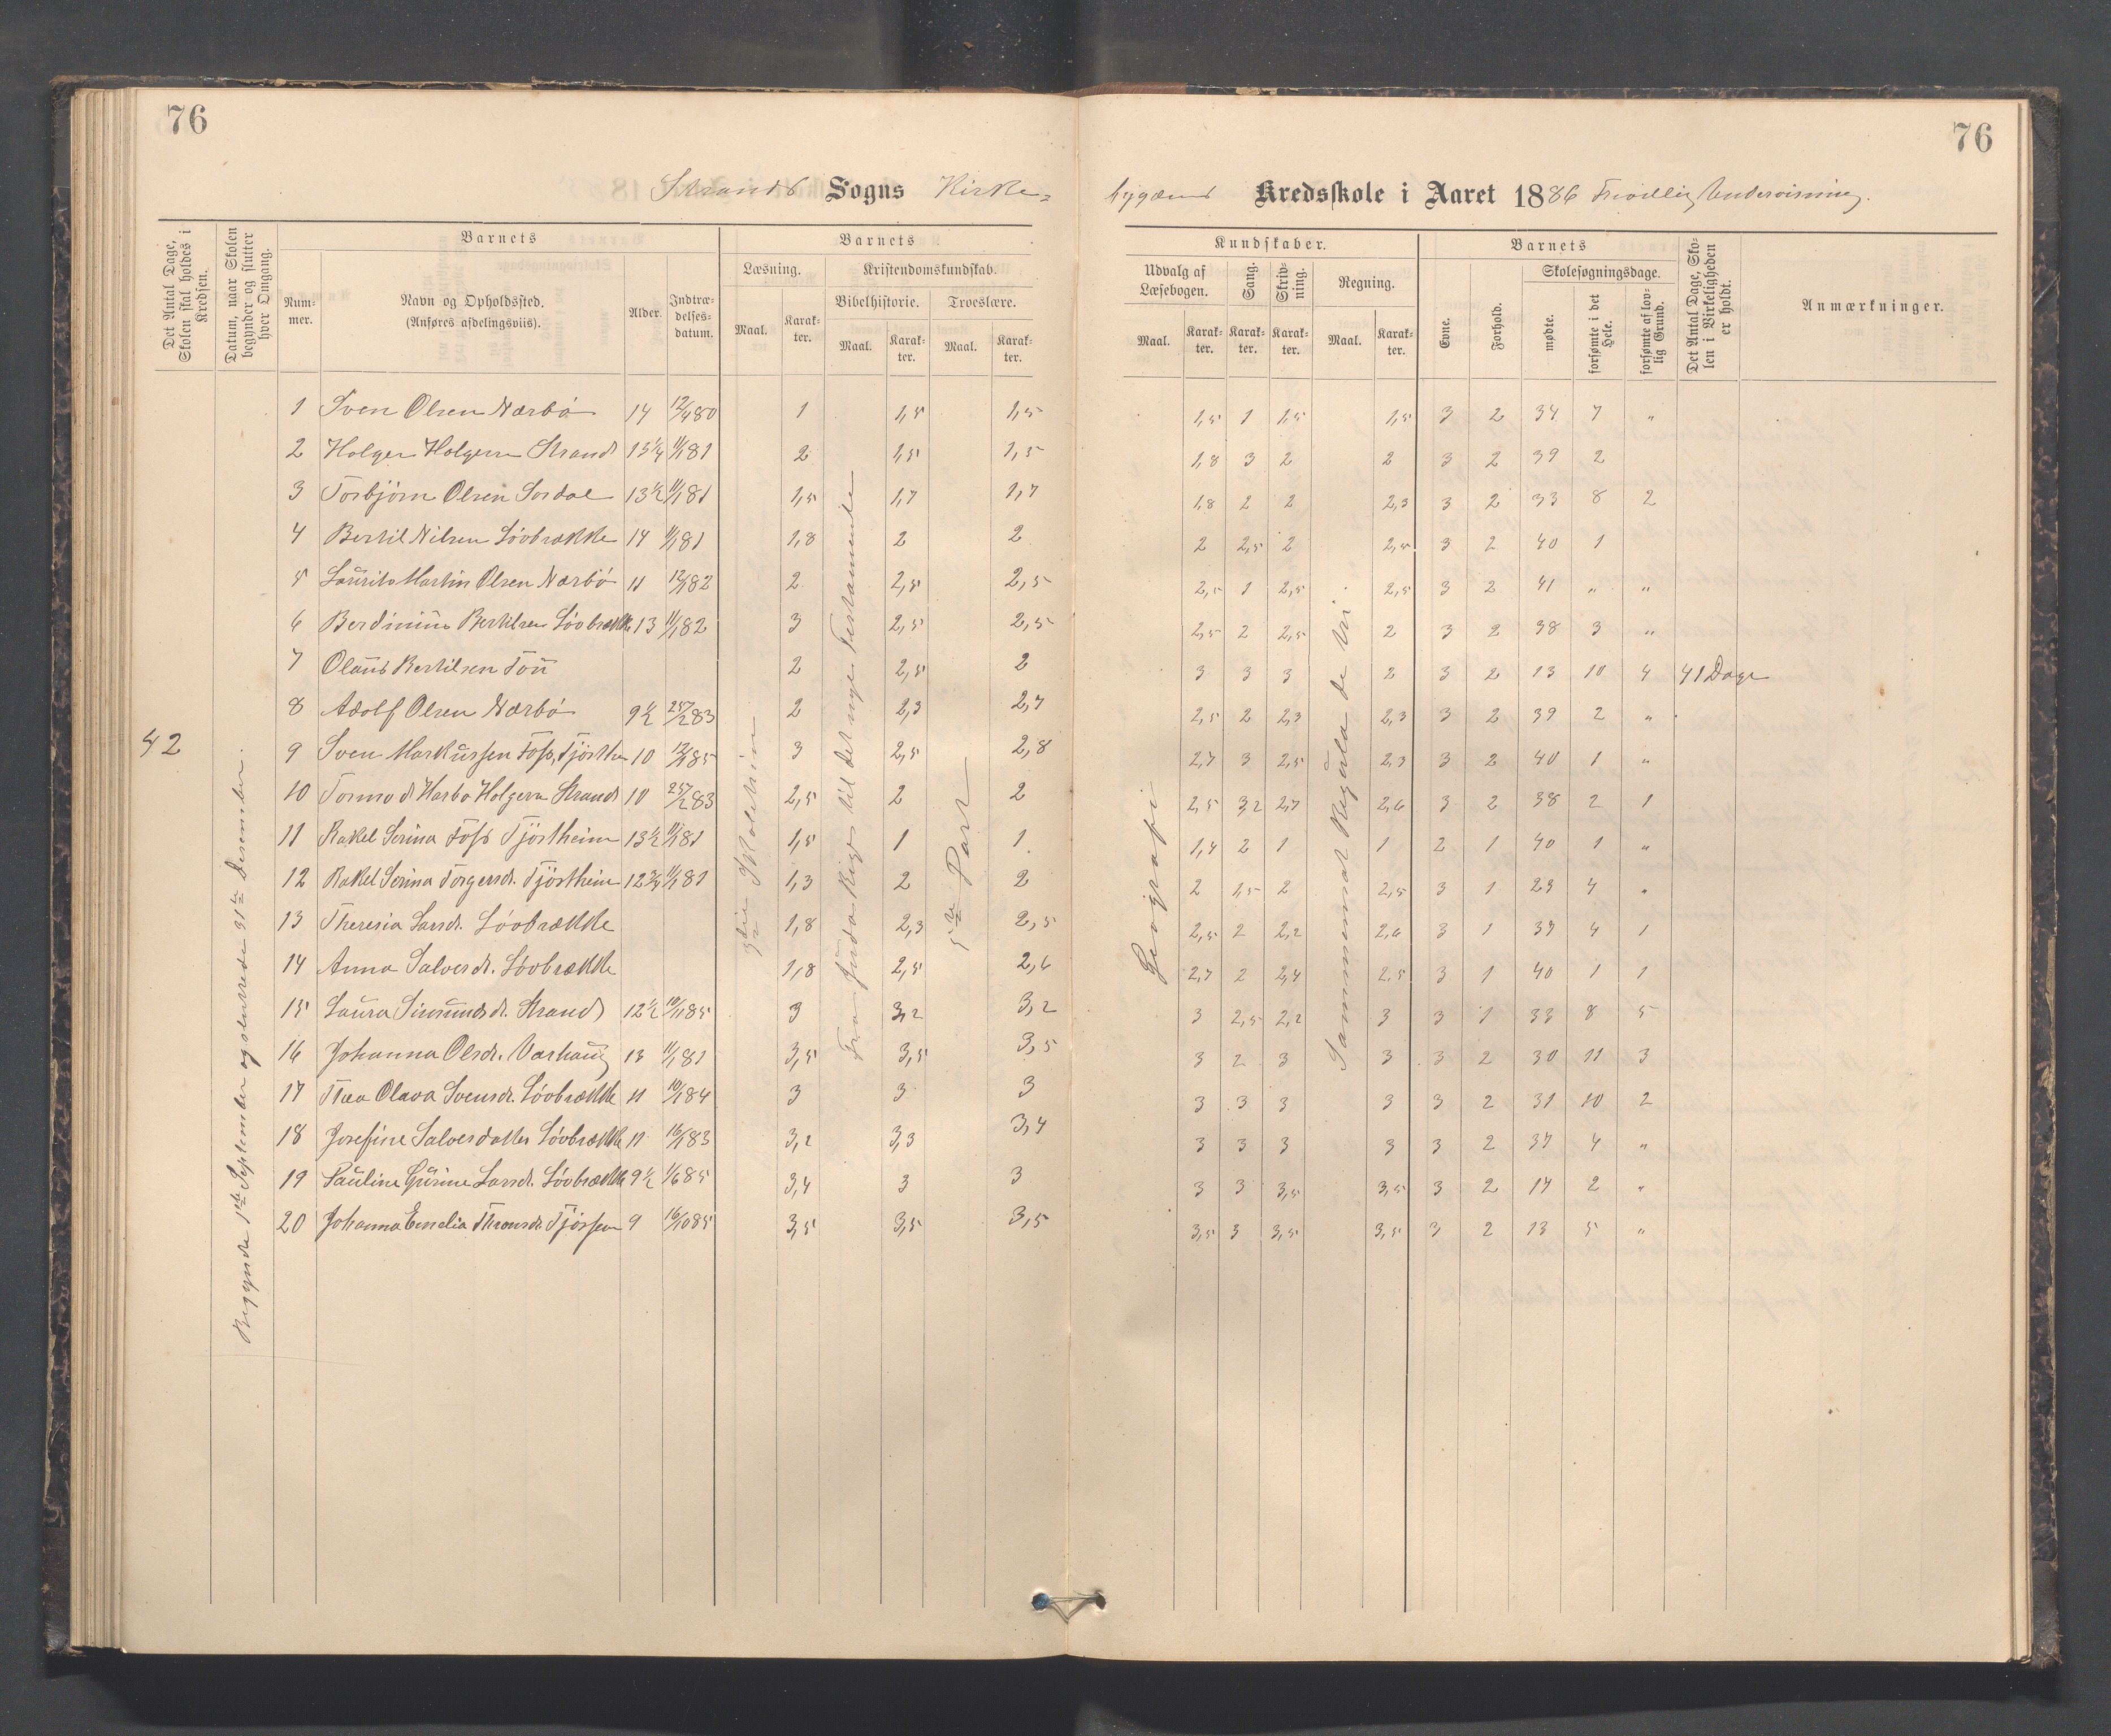 76
76
Strands Sogns Kirke=
bygdens Kredsskole i Aaret 1886 Frivillig Undervisning.
Det Antal Dage, Skolen skal holdes i Kredsen.
Datum, naar Skolen begynder og slutter hver Omgang.
Barnets
Num-mer.
Navn og Opholdssted. (Anføres afdelingsviis).
Alder.
Indtræ-delses-datum.
Barnets
Læsning.
Maal.
Karak-ter.
Kristendomskundskab.
Bibelhistorie.
Maal.
Karak-ter.
Troeslære.
Maal.
Karak-ter.
Kundskaber.
Udvalg af Læsebogen.
Maal.
Karak-ter.
Sang.
Karak-ter.
Skriv-ning.
Karak-ter.
Regning.
Maal.
Karak-ter.
Barnets
Evne.
Forhold.
Skolesøgningsdage.
mødte.
forsømte i det Hele.
forsømte af lov-lig Grund.
Det Antal Dage, Sko-len i Virkeligheden er holdt.
Anmærkninger.
42
Begyndte 1ste September og sluttede 31te Desember.
Fra Juda Rige til det nye Testamente
5te Part
Geografi
Sammensat Regula de tri.
41 Dage
1 Sven Olsen Nærbø 14 12/4 80 1 1,5 1,5 1,5 1 1,5 1,5 3 2 34 7 "
2 Holger Holgersen Strand 13 1/4 11/1 81 2 1,5 1,5 1,8 3 2 2 3 2 39 2
3 Torbjørn Olsen Sordal 13 1/2 11/1 81 1,5 1,7 1,7 1,8 2 2 2,3 3 2 33 8 2
4 Bertil Nilsen Løvbrække 14 11/1 81 1,8 2 2 2 2,5 2 2,5 3 2 40 1
5 Laurits Martin Olsen Nærbø 11 12/1 82 2 2,5 2,5 2,5 1 2,5 2,5 3 2 41 " "
6 Berdinius Bertilsen Løvbrække 13 11/1 82 3 2,5 2,5 2,5 2 2,5 2 3 2 38 3 "
7 Olaus Bertilsen Tou 2 2,5 2 3 3 3 2 3 2 13 10 4
8 Adolf Olsen Nærbø 9 1/2 25/2 83 2 2,3 2,7 2,5 2 2,3 2,3 3 2 39 2 "
9 Sven Markussen Foss, Tjøstheim 10 12/1 85 3 2,5 2,8 2,7 3 2,5 2,3 3 2 40 1 "
10 Tormod Harbo Holgersen Strand 10 25/2 83 2,5 2 2 2,5 3,2 2,7 2,6 3 2 38 2 1
11 Rakel Serina Foss Tjøstheim 13 1/2 11/1 81 1,5 1 1 1,4 2 1 1 2 1 40 1 "
12 Rakel Serina Torgersdr. Tjøstheim 12 3/4 11/1 81 1,3 2 2 2 1,5 2 2,5 3 1 29 4 "
13 Theresia Larsdr. Løvbrække 1,8 2,3 2,5 2,5 2 2,2 2,6 3 1 37 4 1
14 Anna Salvesdr. Løvbrække 1,8 2,5 2,6 2,7 2 2,4 2,5 3 1 40 1 1
15 Laura Simundsdr. Strand 12 1/2 10/11 85 3 3,2 3,2 3 2,5 2,2 3 3 1 33 8 5
16 Johanna Olsdr. Varhaug 13 11/1 81 3,5 3,5 3,5 3 2 3 3 3 2 30 11 3
17 Thea Olava Svensdr. Løvbrække 11 10/1 84 3 3 3 3 3 3 3 3 2 31 10 2
18 Josefine Salvesdatter Løvbrække 11 16/1 83 3,2 3,3 3,4 3 3 3 3 3 2 37 4 "
19 Pauline Gurine Larsdr. Løvbrække 9 1/2 1/6 85 3,4 3 3 3 3 3,5 3,5 3 2 17 2 "
20 Johanna Emelia Thronsdr. 9 16/10 85 3,5 3,5 3,5 3,5 3 3,5 3,5 3 2 13 5 "